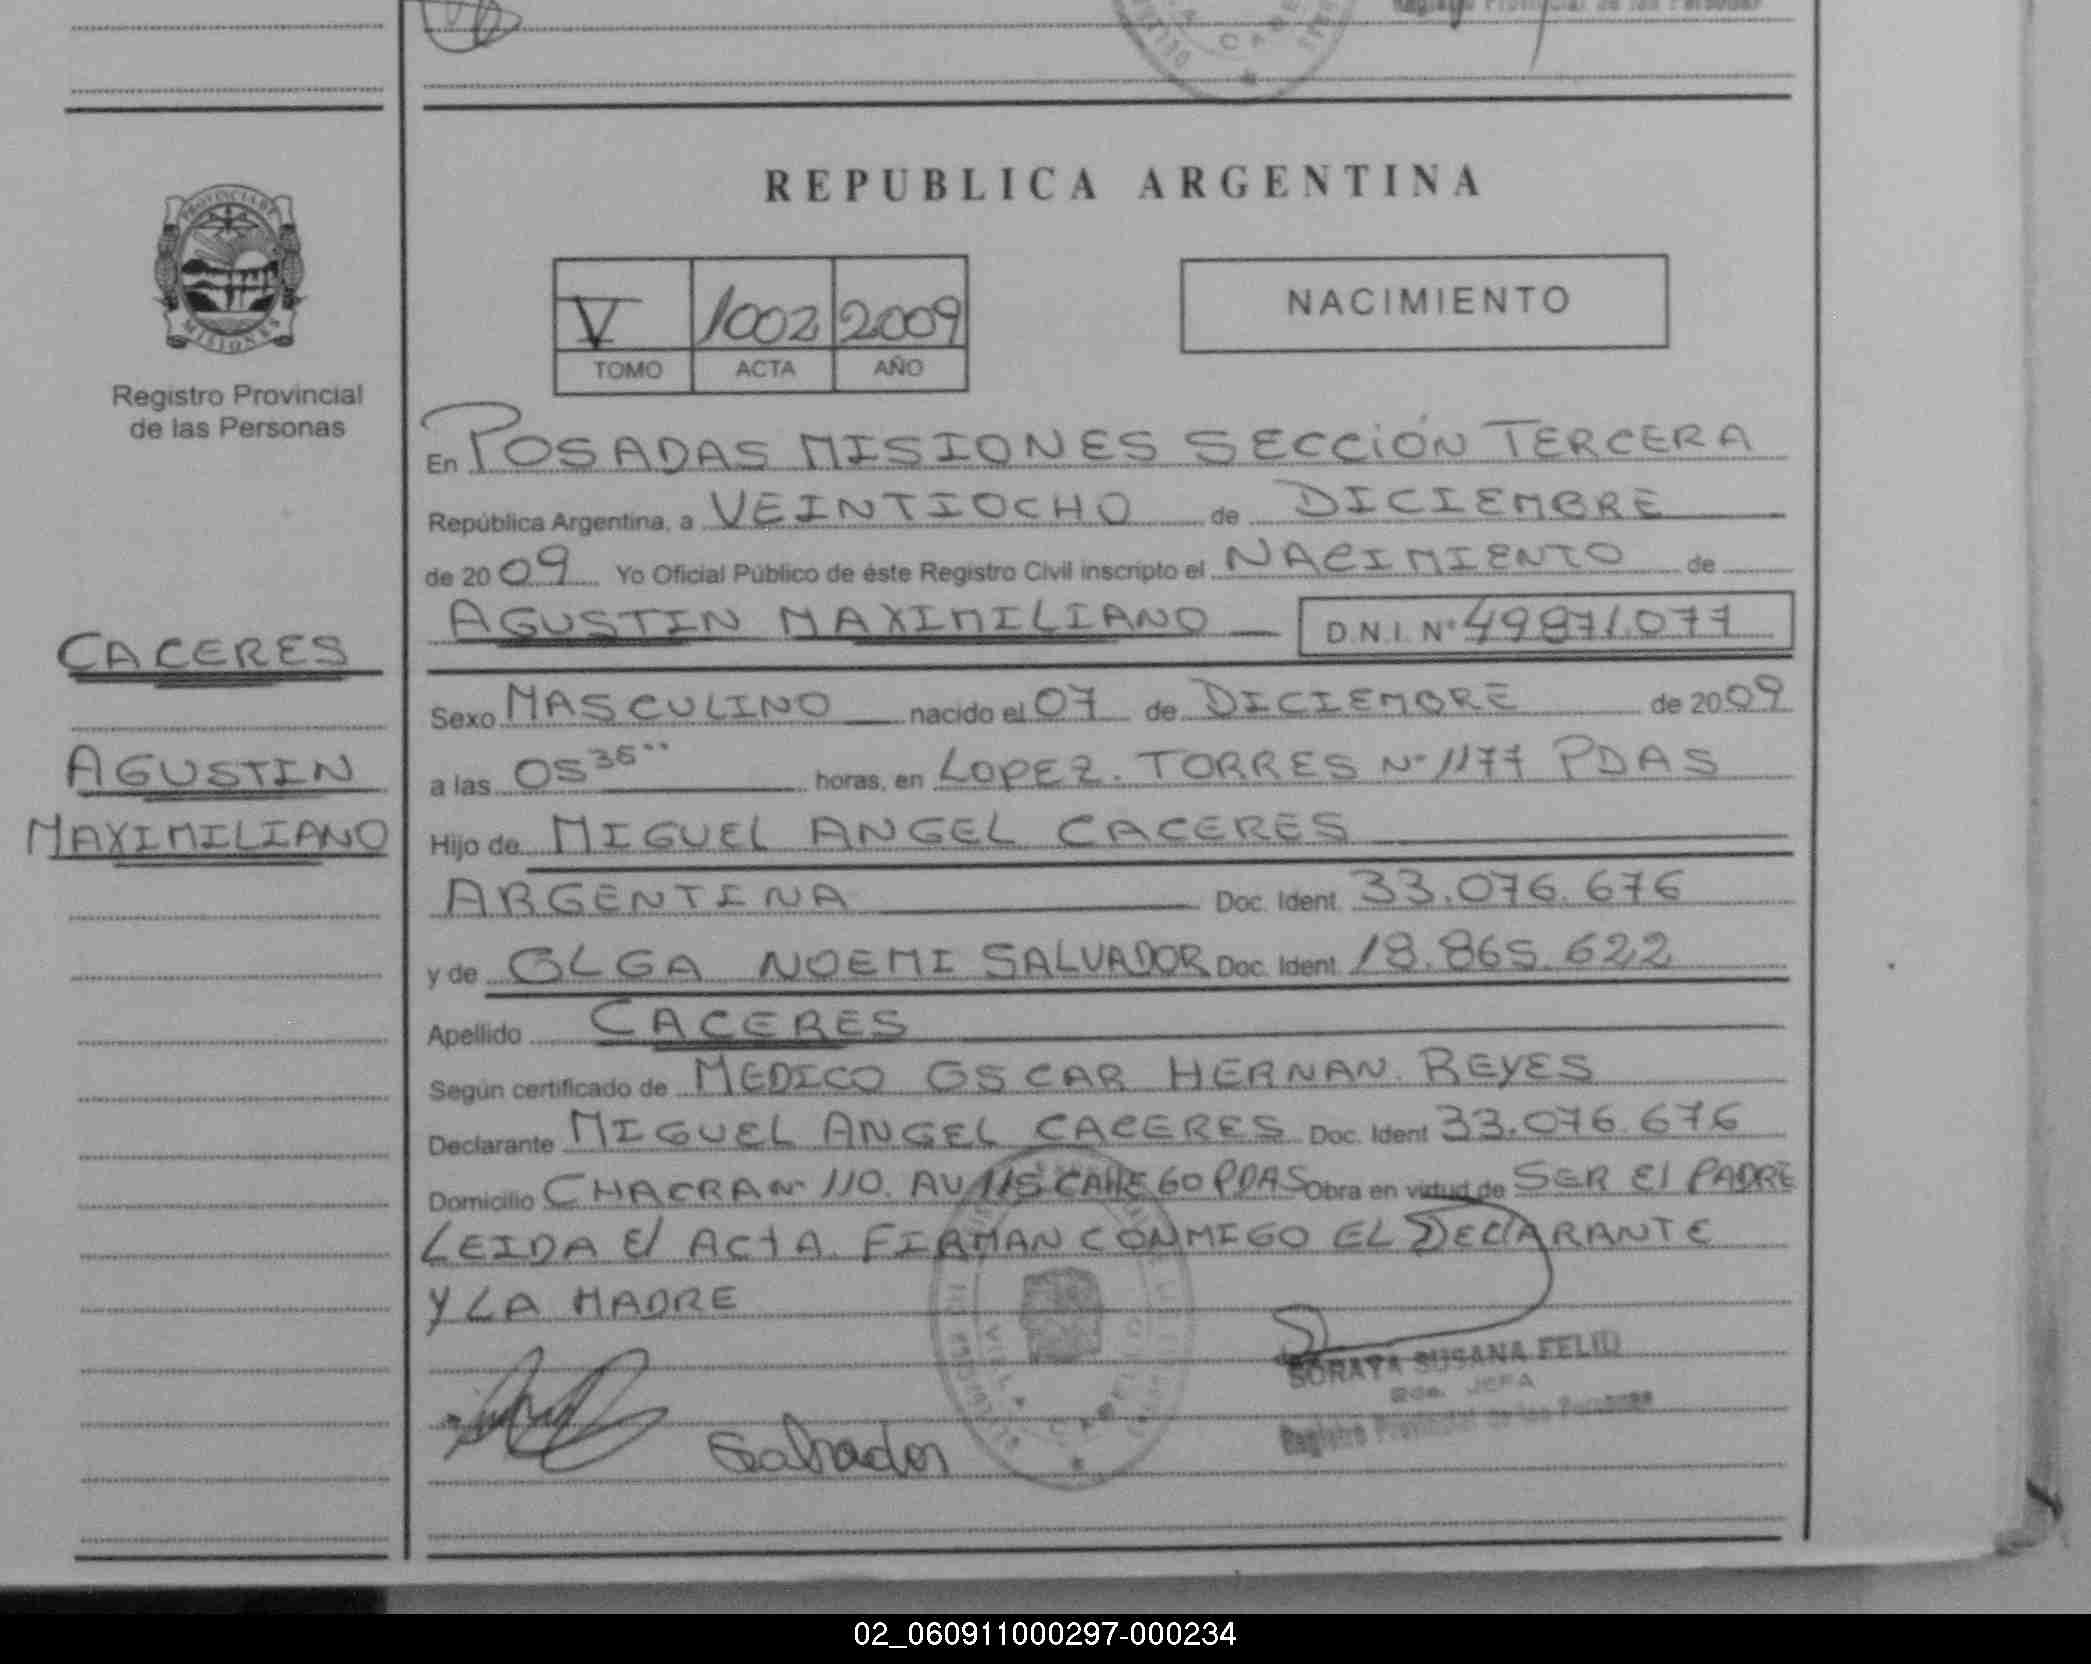 REPUBLICA ARGENTINA
PROVINCIA DE
MISIONES
Registro Provincial
de las Personas
V 1002 2009
TOMO ACTA AÑO
NACIMIENTO
En POSADAS MISIONES SECCIÓN TERCERA
República Argentina, a VEINTIOCHO de DICIEMBRE
de 2009 Yo Oficial Público de éste Registro Civil inscripto el NACIMIENTO de
AGUSTIN MAXIMILIANO D.N.I. Nº 49871.077
CACERES
AGUSTIN
MAXIMILIANO
Sexo MASCULINO nacido el 07 de DICIEMBRE de 2009
a las 05 36 horas, en LOPEZ. TORRES Nº 1177 PDAS
Hijo de MIGUEL ANGEL CACERES
ARGENTINA Doc. Ident. 33.076.676
y de OLGA NOEMI SALVADOR Doc. Ident. 18.865.622
Apellido CACERES
Según certificado de MEDICO OSCAR HERNAN. REYES
Declarante MIGUEL ANGEL CACERES Doc. Ident 33.076.676
Domicilio CHACRA Nº 110. AV 115 CALLE 60 PDAS Obra en virtud de SER El PADRE
LEIDA El ACTA. FIRMAN CONMIGO EL DEClARANTE
Y LA MADRE
Salvador
SORAYA SUSANA FELIU
JEFA
Registro Provincial de las Personas
02_060911000297-000234